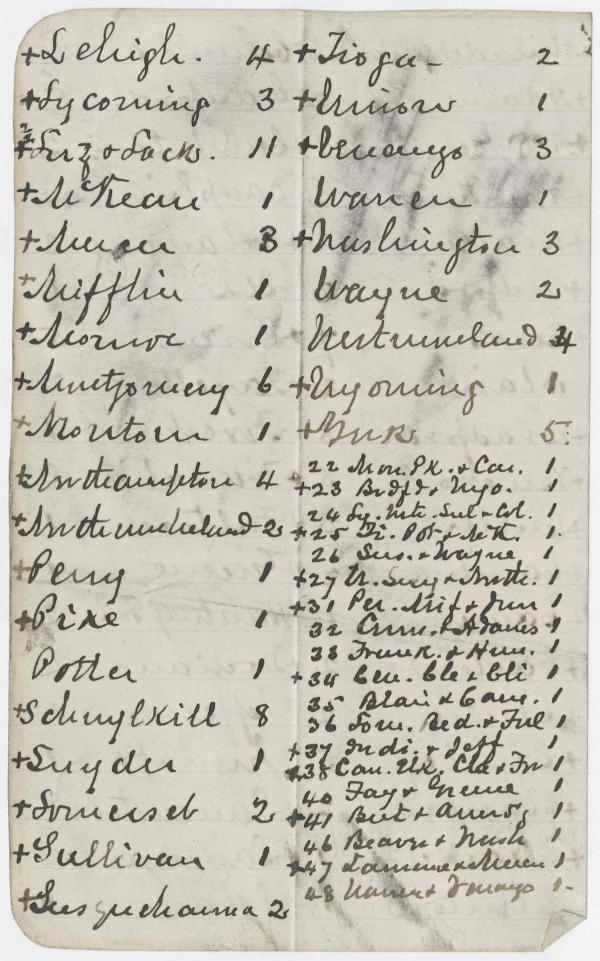 +Lehigh. 4
+Lycoming 3
+Luz & Lack. 11
+McKean 1
+Mercer 3
+Mifflin 1
+Monroe 1
+Montgomery 6
+Montour 1
+Northampton 4
+Northumberland 2
+Perry 1
+Pike 1
Potter 1
+Schuylkill 8
+Snyder 1
+Somerset 2
+Sullivan 1
+Susquehanna 2
+Tioga - 2
+Union 1
+Venango 3
Warren 1
+Washington 3
Wayne 2
Westmoreland 4
+Wyoming 1
+York 5
22 Mon. Pk. & Car. 1
+23 Bradfd & Wyo. 1
24 Ly. Mt. Sul & Col. 1
+25 Ti. Pot & McK. 1
26 Sus. & Wayne 1
+27 Un. Sny & North. 1
+31 Per. Mif & Jun 1
32 Cum. & Adams 1
33 Frank. & Hun. 1
+34 Cen. Cle & Cli 1
35 Blair & Cam. 1
36 Som. Bed. & Ful 1
+37 Indi. & Jeff 1
+38 Cam. Elk. Cla & For 1
40 Fay & Greene 1
+41 But & Armsg 1
46 Beaver & Wash 1
+47 Lawrence & Mercer 1
48 Warren & Venango 1